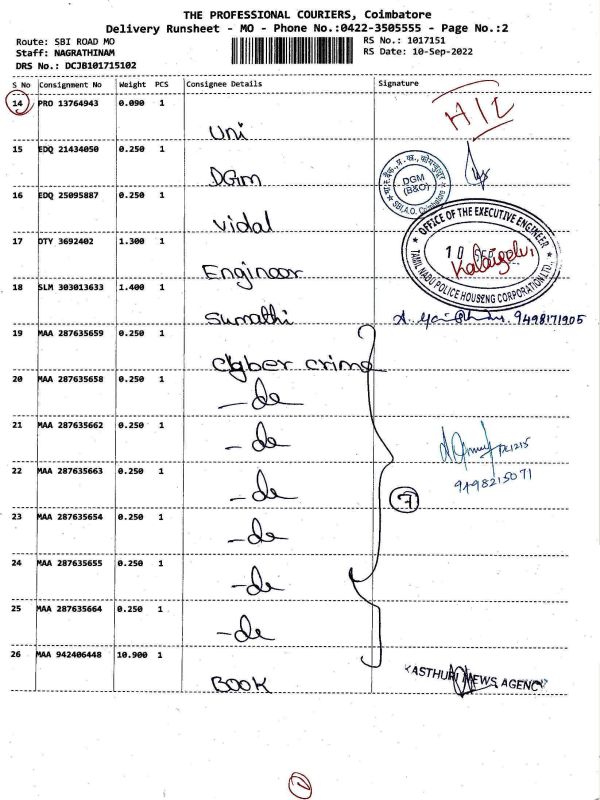 THE PROFESSIONAL COURIERS, Coimbatore
Delivery Runsheet - MO - Phone No.:0422-3505555 - Page No.:2
Route: SBI ROAD MO
RS No.: 1017151
Staff: NAGRATHINAM
RS Date: 10-Sep-2022
DRS No.: DCJB101715102
S No Consignment No Weight PCS Consignee Details Signature
14 PRO 13764943 0.090 1
H/L
Uni
15 EDQ 21434050 0.250 1
DGM
DGM
(B&O)
16 EDQ 25095887 0.250 1
Vidal
OFFICE OF THE EXECUTIVE ENGINEER
TAMIL NADU POLICE HOUSING CORPORATION LTD.,
17 DTY 3692402 1.300 1
Engineer
18 SLM 303013633 1.400 1
Sumathi
9498171905
19 MAA 287635659 0.250 1
Cyber crime
20 MAA 287635658 0.250 1
-do
21 MAA 287635662 0.250 1
-do
PC1215
22 MAA 287635663 0.250 1
-do
9498215071
7
23 MAA 287635654 0.250 1
-do
24 MAA 287635655 0.250 1
-do
25 MAA 287635664 0.250 1
-do
26 MAA 942406448 10.900 1
KASTHURI NEWS AGENCY
BOOK